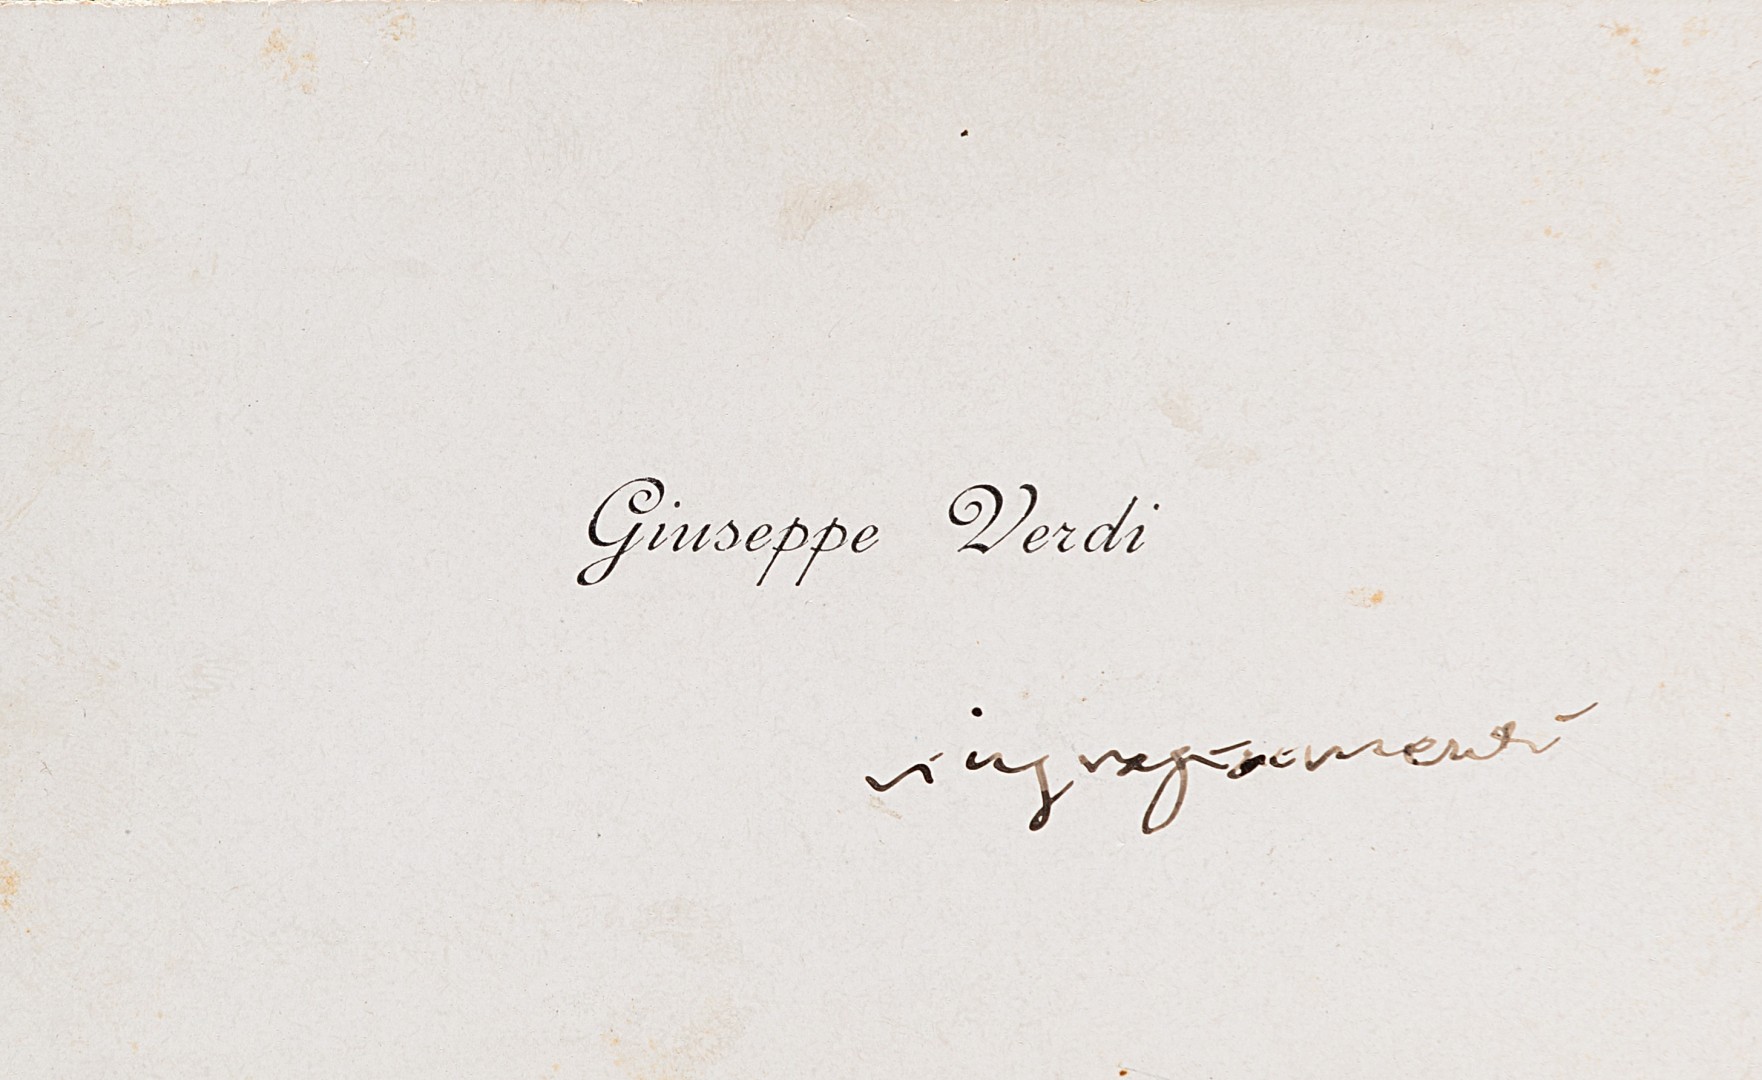 Giuseppe Verdi
ringraziamenti